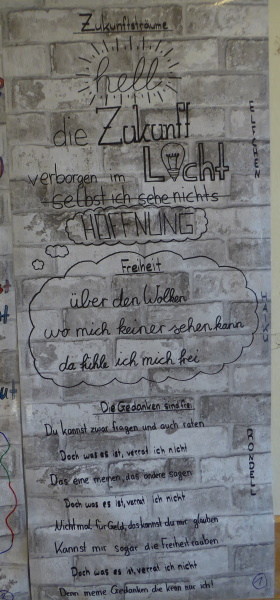 Zukunftsträume
hell
die Zukunft
verborgen im Licht
selbst ich sehe nichts
HOFFNUNG
ELFCHEN
Freiheit
über den Wolken
wo mich keiner sehen kann
da fühle ich mich frei
HAIKU
Die Gedanken sind frei
Du kannst zwar fragen und auch raten
Doch was es ist, verrat ich nicht
Das eine meinen, das andre sagen
Doch was es ist, verrat ich nicht
Nicht mal für Geld, das kannst du mir glauben
Kannst mir sogar die Freiheit rauben
Doch was es ist, verrat ich nicht
Denn meine Gedanken die kenn nur ich!
RONDELL
1